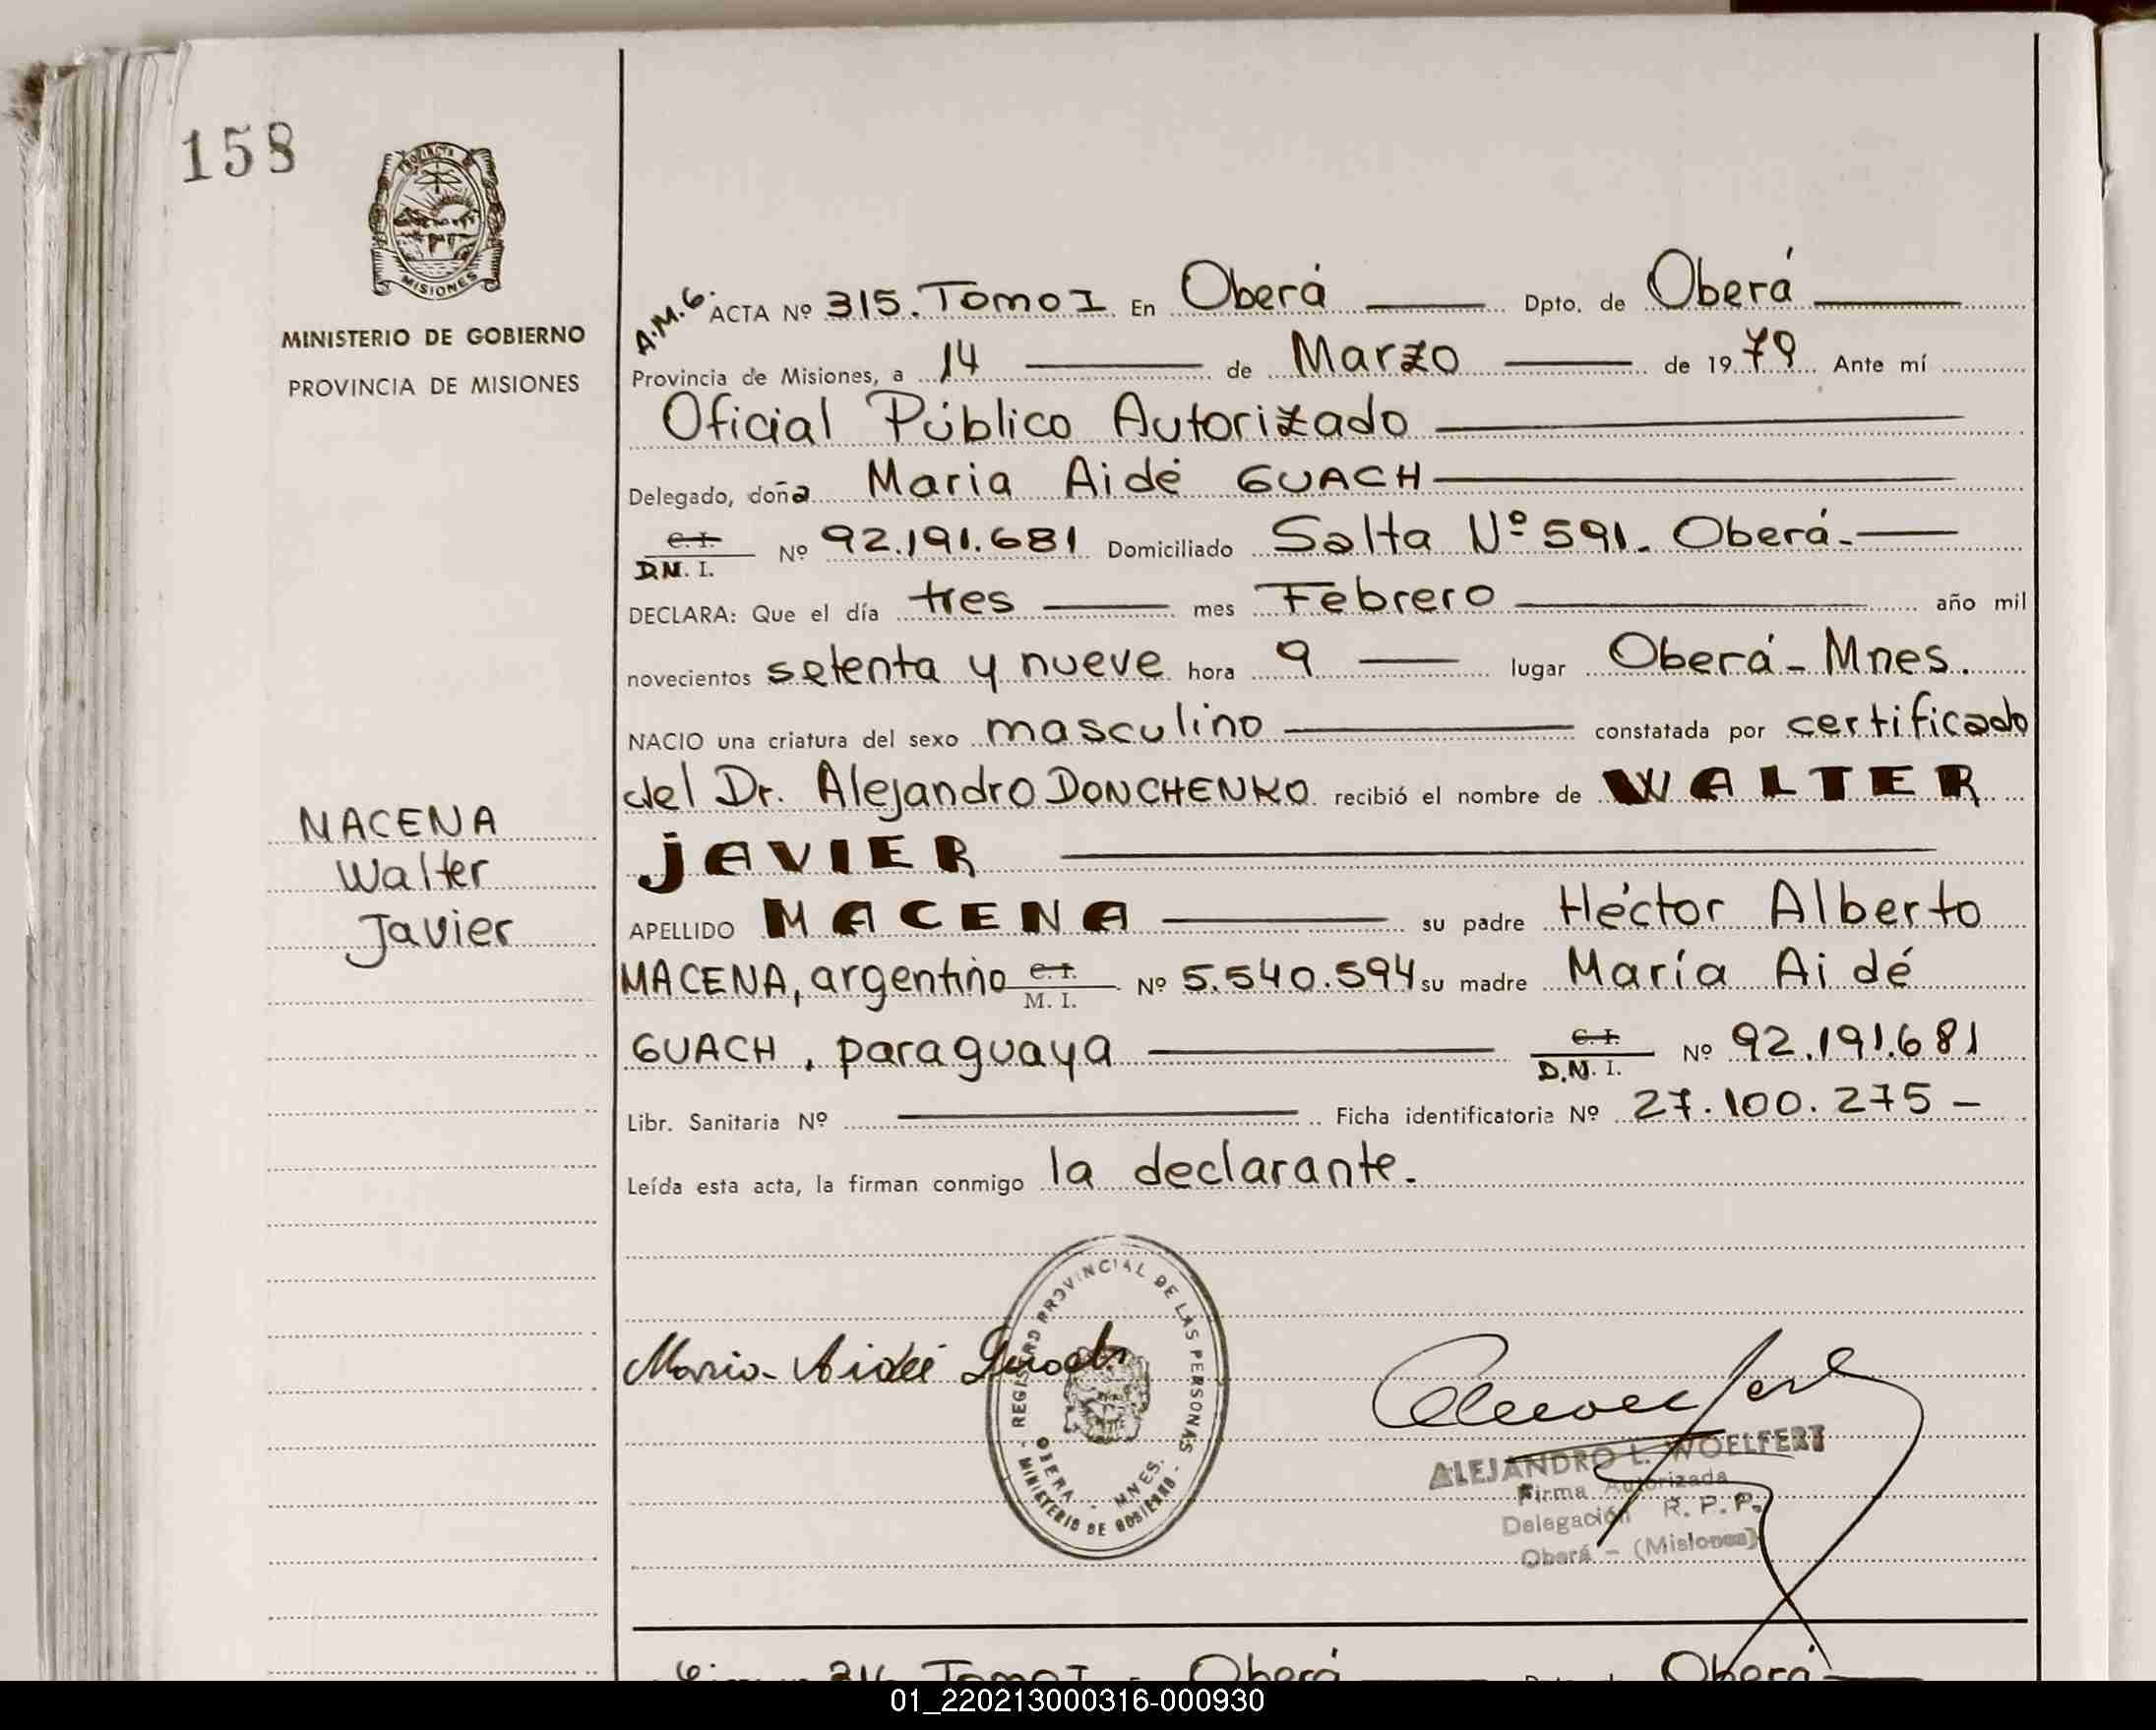 158
PROVINCIA
MISIONES
MINISTERIO DE GOBIERNO
PROVINCIA DE MISIONES
MACENA
Walter
Javier
A.M.G. ACTA Nº 315. Tomo I En Oberá Dpto. de Oberá
Provincia de Misiones, a 14 de Marzo de 1979 Ante mí
Oficial Público Autorizado
Delegado, doña Maria Aidé GUACH
C. I. D.N. I. Nº 92.191.681 Domiciliado Salta Nº 591. Oberá.
DECLARA: Que el día tres mes Febrero año mil
novecientos setenta y nueve hora 9 lugar Oberá - Mnes.
NACIO una criatura del sexo masculino constatada por certificado
del Dr. Alejandro DONCHENKO recibió el nombre de WALTER
JAVIER
APELLIDO MACENA su padre Héctor Alberto
MACENA, argentino C. I. M. I. Nº 5.540.594 su madre María Aidé
GUACH, paraguaya C. I. D.N. I. Nº 92.191.681
Libr. Sanitaria Nº Ficha identificatoria Nº 27.100.275 -
Leída esta acta, la firman conmigo la declarante.
Maria Aidée Guach
REGISTRO PROVINCIAL DE LAS PERSONAS
OBERA - MNES.
MINISTERIO DE GOBIERNO
ALEJANDRO L. WOELFERT
Firma Autorizada
Delegación R. P. P.
Oberá - (Misiones)
316 Tomo I Oberá Oberá
01_220213000316-000930